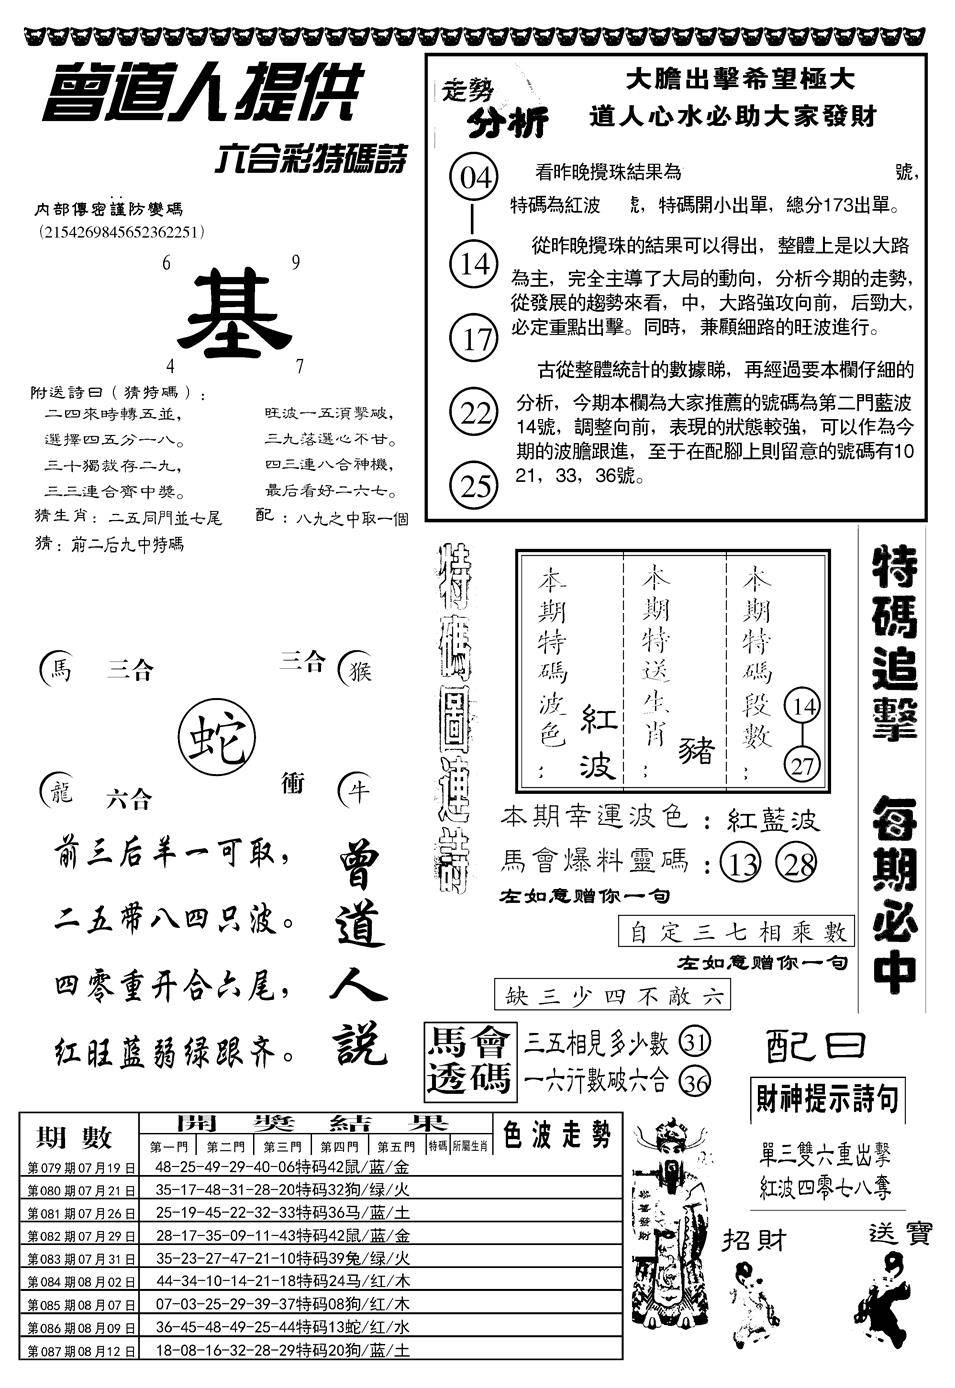 曾道人提供
六合彩特碼詩
內部傳密謹防變碼
(2154269845652362251)
6 9
基
4 7
附送詩曰(猜特碼):
二四來時轉五並, 旺波一五須擊破,
選擇四五分一八。 三九落選心不甘。
三十獨裁存二九, 四三連八合神機,
三三連合齊中獎。 最后看好二六七。
猜生肖:二五同門並七尾 配:八九之中取一個
猜:前二后九中特碼
走勢
分析
大膽出擊希望極大
道人心水必助大家發財
04
14
17
22
25
看昨晚攪珠結果為 號,
特碼為紅波 號,特碼開小出單,總分173出單。
從昨晚攪珠的結果可以得出,整體上是以大路
為主,完全主導了大局的動向,分析今期的走勢,
從發展的趨勢來看,中,大路強攻向前,后勁大,
必定重點出擊。同時,兼顧細路的旺波進行。
古從整體統計的數據睇,再經過要本欄仔細的
分析,今期本欄為大家推薦的號碼為第二門藍波
14號,調整向前,表現的狀態較強,可以作為今
期的波膽跟進,至于在配腳上則留意的號碼有10
21,33,36號。
馬 三合 三合 猴
蛇
龍 六合 衝 牛
前三后羊一可取,
二五带八四只波。
四零重开合六尾,
红旺蓝弱绿跟齐。
曾道人説
特碼圖連詩
本期特碼波色:
紅波
本期特送生肖:
豬
本期特碼段數:
14
27
本期幸運波色:紅藍波
馬會爆料靈碼:13 28
左如意赠你一句
自定三七相乘數
左如意赠你一句
缺三少四不敵六
特碼追擊 每期必中
馬會透碼
三五相見多少數 31
一六行數破六合 36
配曰
財神提示詩句
單三雙六重出擊
紅波四零七八奪
招財
送寶
期數 開獎結果 色波走勢
第一門 第二門 第三門 第四門 第五門 特碼 所屬生肖
第079期07月19日 48-25-49-29-40-06特码42鼠/蓝/金
第080期07月21日 35-17-48-31-28-20特码32狗/绿/火
第081期07月26日 25-19-45-22-32-33特码36马/蓝/土
第082期07月29日 28-17-35-09-11-43特码42鼠/蓝/金
第083期07月31日 35-23-27-47-21-10特码39兔/绿/火
第084期08月02日 44-34-10-14-21-18特码24马/红/木
第085期08月07日 07-03-25-29-39-37特码08狗/红/木
第086期08月09日 36-45-48-49-25-44特码13蛇/红/水
第087期08月12日 18-08-16-32-28-29特码20狗/蓝/土